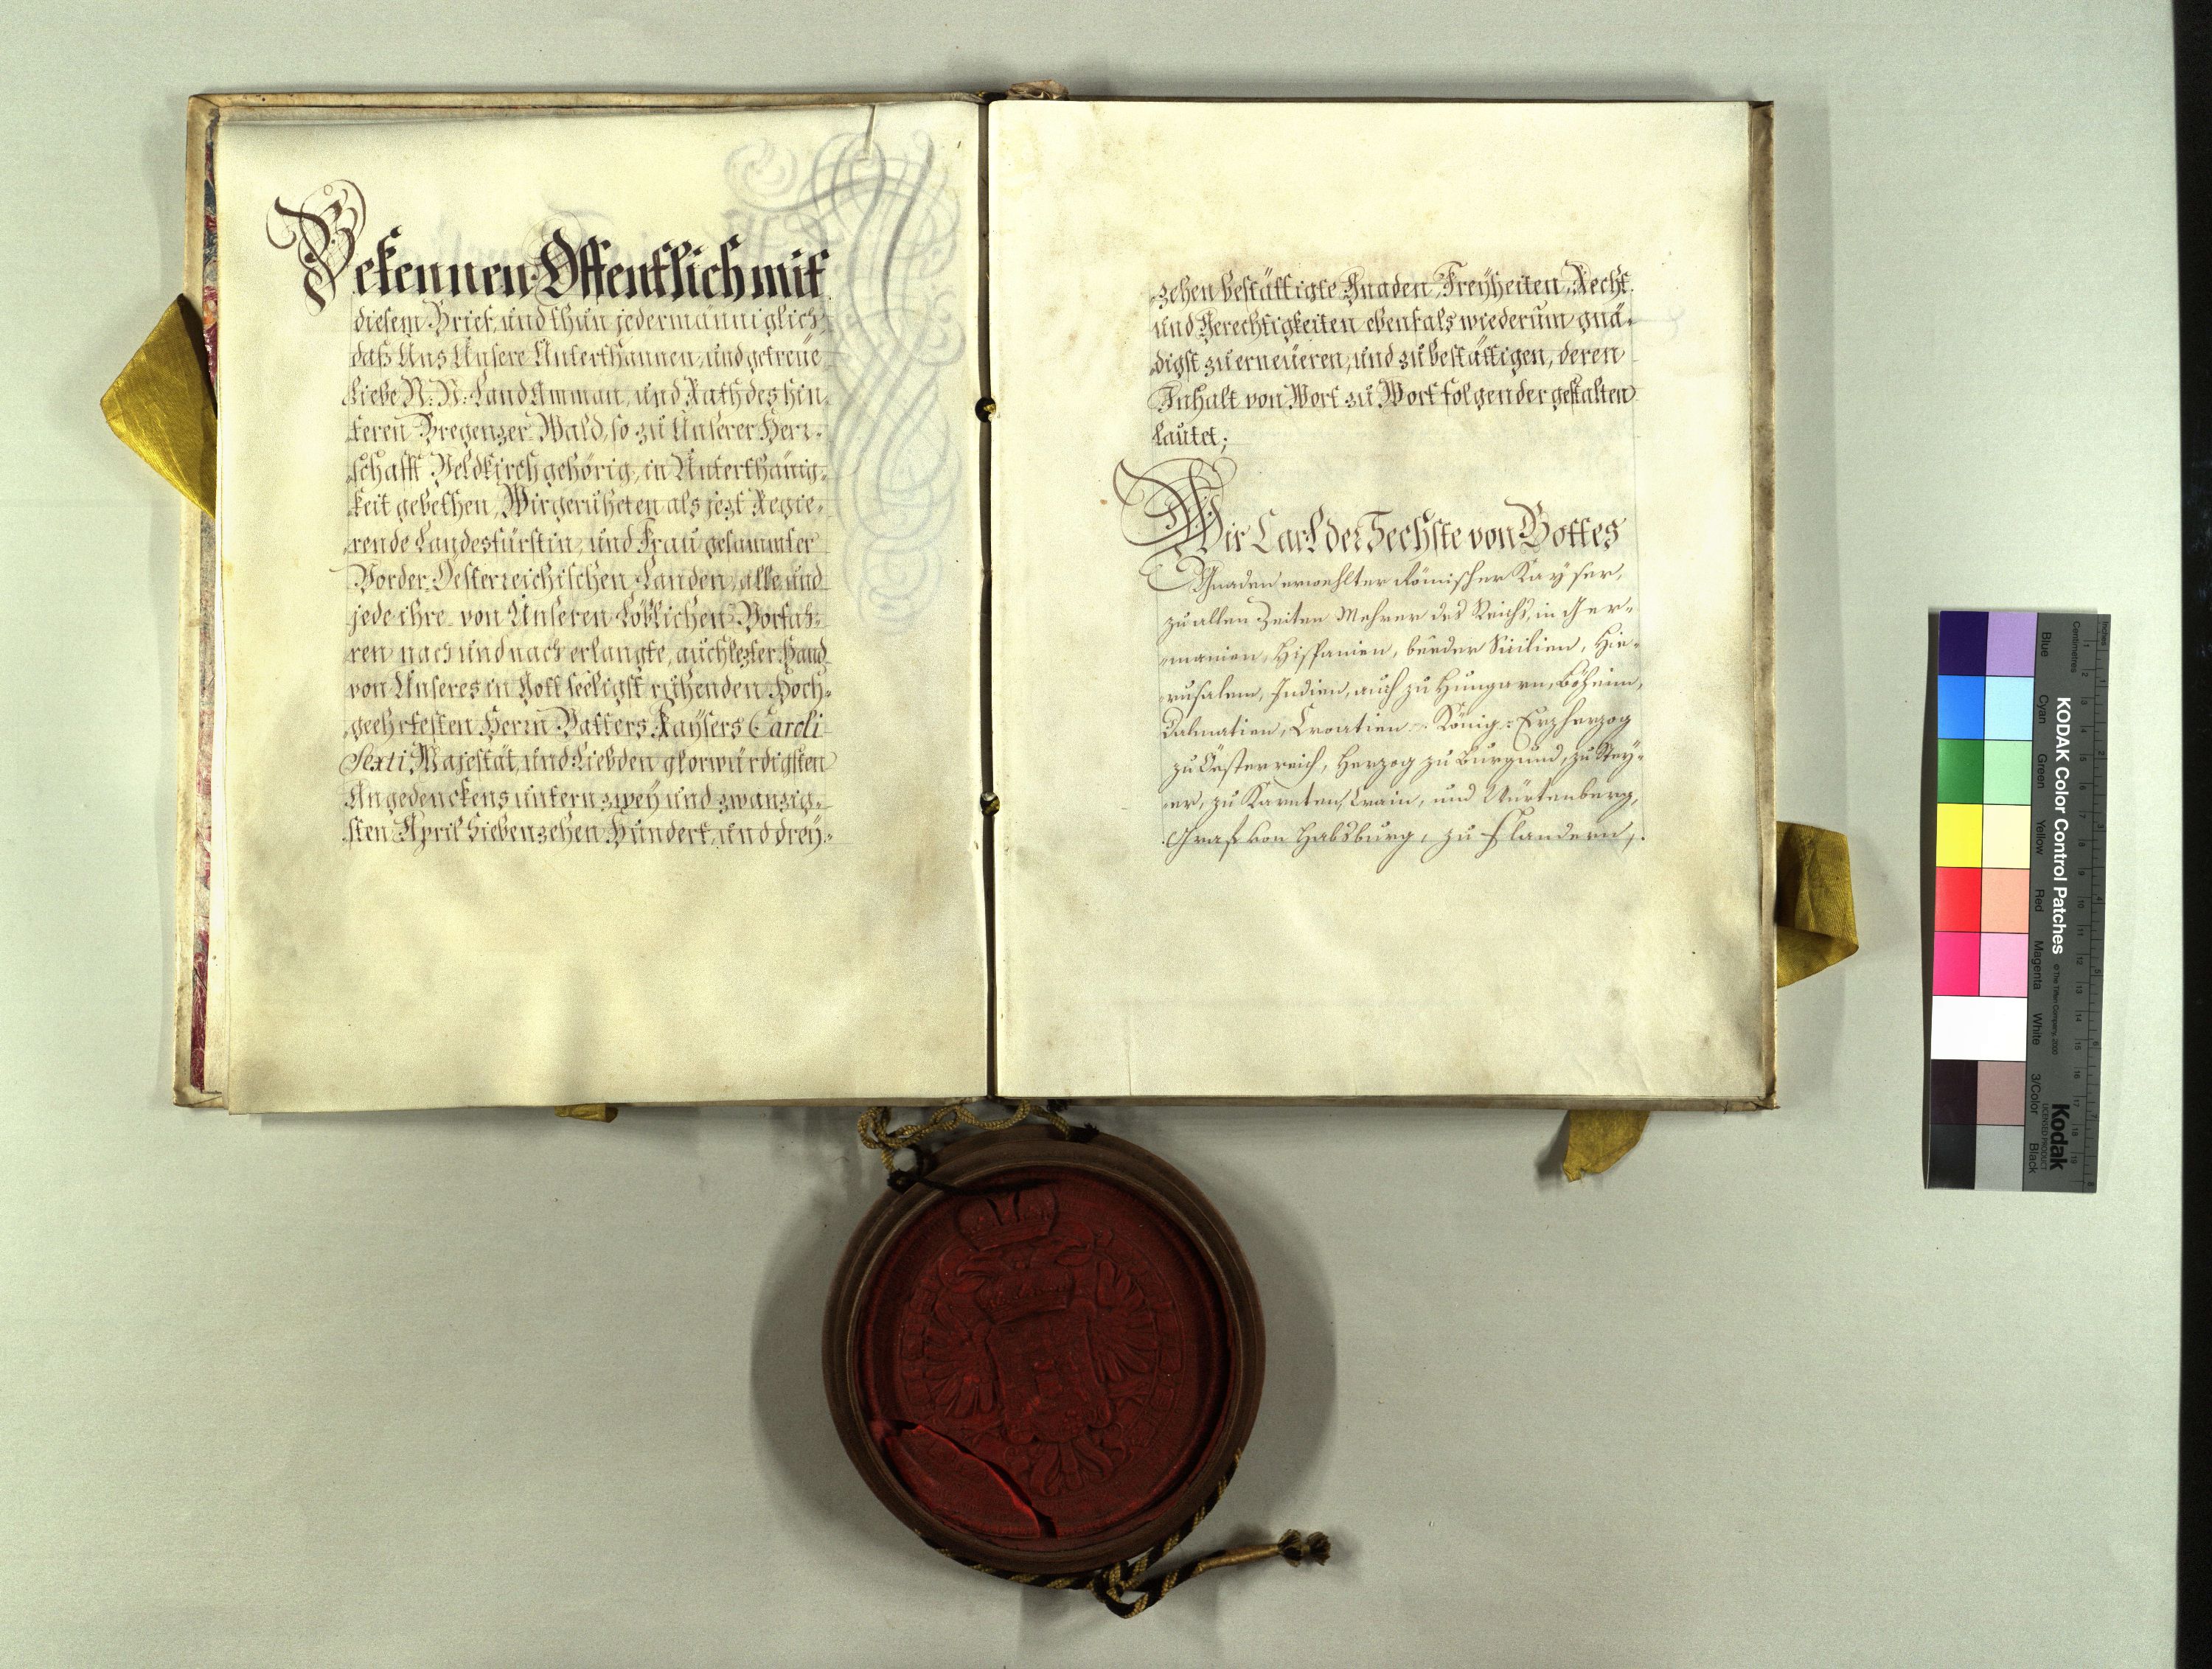 Bekennen Öffentlich mit
diesem Brief, und thun jedermänniglich,
daß Uns Unsere Unterthannen, und getreüe
Liebe N: N: Land Amman, und Rath des hin,
teren Bregenzer-Wald, so zu Unserer Herr-
schafft Veldkirch gehörig, in Unterthänig-
keit gebethen, Wir geruheten als jezt Regie-
rende Landesfürstin, und Frau gesammter
Vorder-Oesterreichischen Landen, alle und
jede ihre von Unseren Löblichen Vorfah-
ren nach und nach erlangte, auch lezter Hand
von Unseres in Gott seeligst ruhenden Hoch-
geehrtesten Herrn Vatters Kaysers Caroli
Sexti Majestät, und Liebden glorwürdigsten
Angedenckens untern zwey und zwanzig-
sten April Siebenzehen Hundert, und drey-
zehen bestättigte Gnaden, Freyheiten, Recht
und Gerechtigkeiten ebenfals wiederum gnä-
digst zu erneüeren, und zu bestättigen, deren
Inhalt von Wort zu Wort folgender gestalten
lautet;
Wir Carl der Sechste von Gottes
Gnaden erwehlter Römischer Kayser,
zu allen Zeiten Mehrer des Reichs, in Ger-
manien, Hispanien, beeder Sicilien, Hie-
rusalem, Indien, auch zu Hungarn, Böheim,
Dalmatien, Croatien König, Erzherzog
zu Oesterreich, Herzog zu Burgund, zu Stey-
er, zu Kärnten, Crain, und Würtenberg,
Graf von Habsburg, zu Flandern,
KODAK Color Control Patches
©The Tiffen Company, 2000
Kodak
LICENSED PRODUCT
Inches
Centimetres
1 2 3 4 5 6 7 8 9 10 11 12 13 14 15 16 17 18 19
Blue Cyan Green Yellow Red Magenta White 3/Color Black